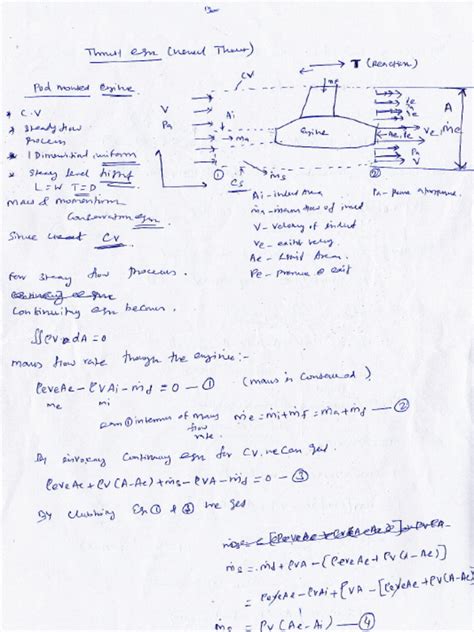 Thrust eqn (Novel Thrust)
T (Reaction)
CV
Pod mounted engine
* C.V
* Steady flow process
* 1 Dimensional uniform
* Steady level flight
L = W T = D
Mass & momentum
Conservation eqn
Since CV
V
Pa
Ai
ṁa
ṁf
Engine
ṁs
Cs
①
②
Ae, Pe
Ve
ṁe
Pa
V
A
Ai - inlet Area
ṁa - mass flow of inlet
V - velocity of inlet
Ve - exit velocity
Ae - Exit Area
Pe - pressure @ exit
Pa -
For steady flow process.
Continuity eqn becomes.
∬ρV•dA = 0
mass flow rate through the engine:-
ρeveAe - ρVAi - ṁf = 0 - ① (mass is conserved)
ṁe ṁi
eqn ① in terms of mass flow rate. ṁe = ṁi + ṁf = ṁa + ṁf — ②
By invoking Continuity eqn for CV, we can get
ρeveAe + ρV(A-Ae) + ṁs - ρVA - ṁf = 0 - ③
By clubbing Eqn ① & ③ we get
ṁs = ṁf + ρVA - [ρeveAe + ρV(A-Ae)]
= ρeveAe - ρVAi + ρVA - [ρeveAe + ρV(A-Ae)
ṁs = ρV(Ae - Ai) — ④